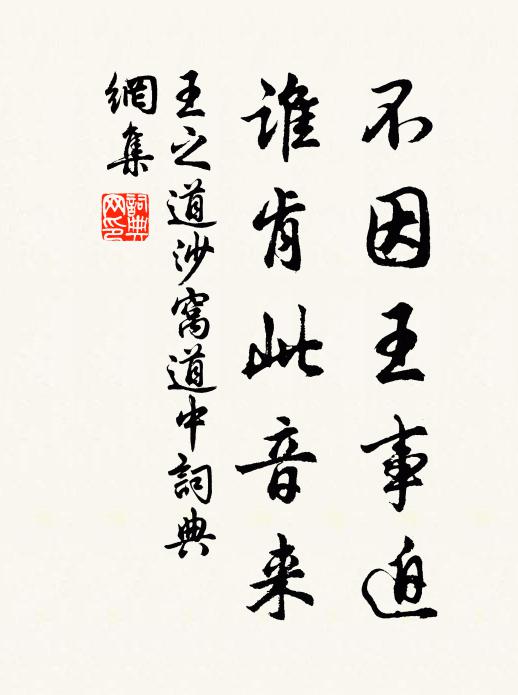 不因王事迫
谁肯此音来
王之道沙窩道中詞典
網集
詞典
网印